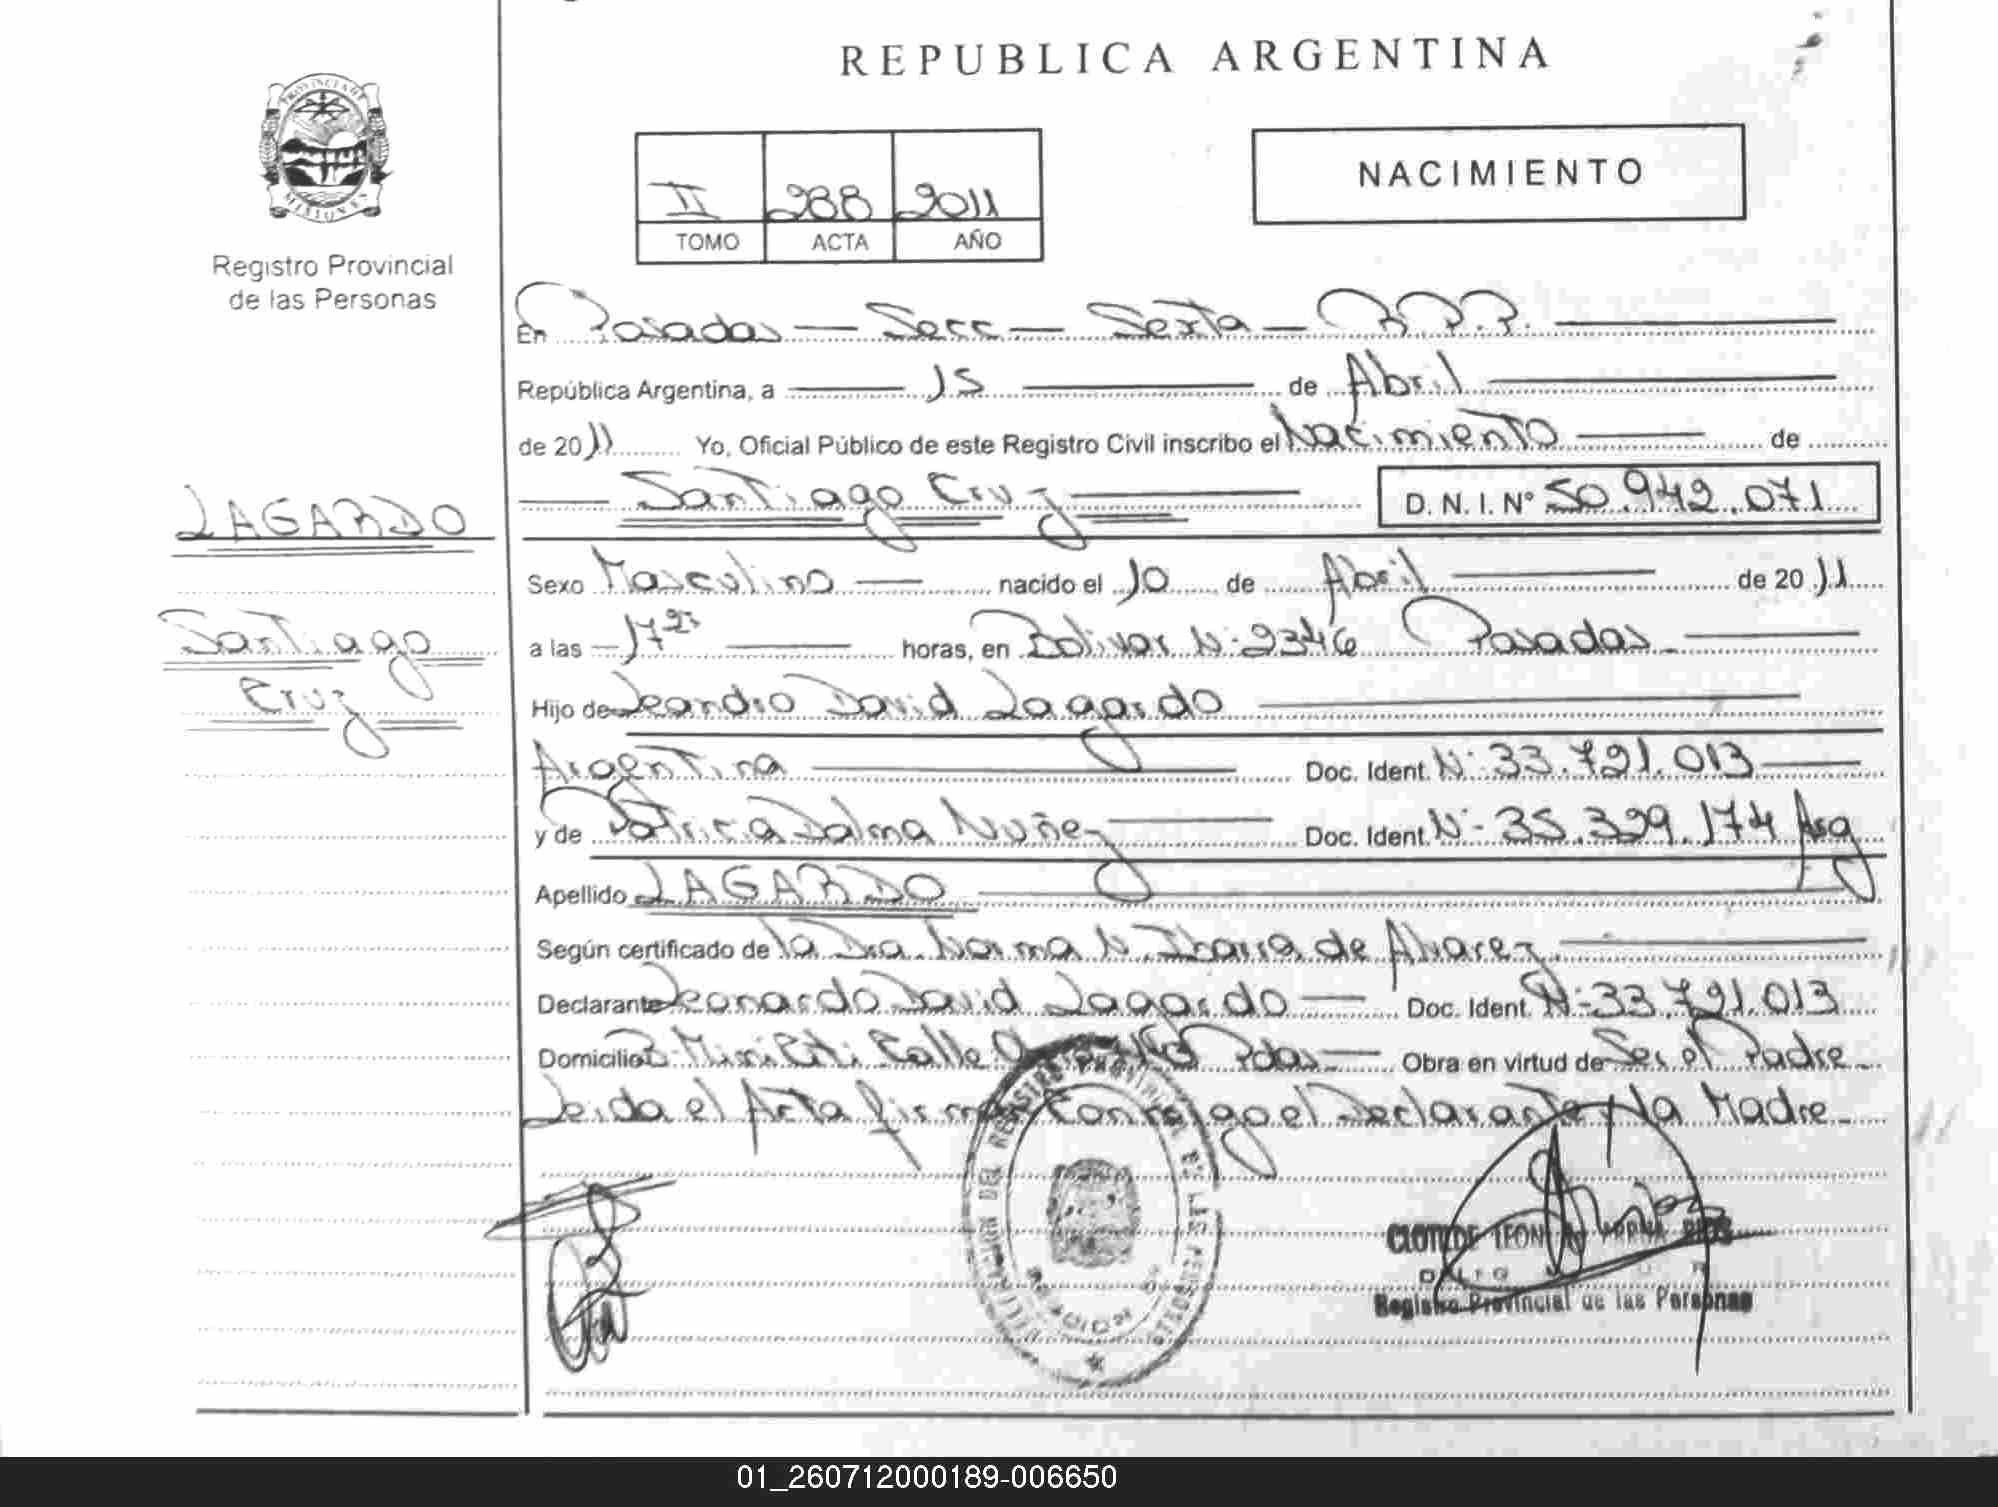 REPUBLICA ARGENTINA
PROVINCIA DE
MISIONES
Registro Provincial
de las Personas
II 288 2011
TOMO ACTA AÑO
NACIMIENTO
En Posadas — Secc — Sexta — R.P.P.
República Argentina, a 15 de Abril
de 2011 Yo, Oficial Público de este Registro Civil inscribo el Nacimiento de
Santiago Cruz D. N. I. Nº 50.942.071
LAGARDO
Santiago
Cruz
Sexo Masculino nacido el 10 de Abril de 2011
a las 17 25 horas, en Bolivar Nº 2346 Posadas
Hijo de Leandro David Lagardo
Argentina Doc. Ident. Nº 33.721.013
y de Patricia Dalma Nuñez Doc. Ident. Nº 35.329.174 Arg
Apellido LAGARDO
Según certificado de la Dra. Norma N. Ibarra de Alvarez
Declarante Leonardo David Lagardo Doc. Ident. Nº 33.721.013
Domicilio Bº Mini Citi Calle Pdas Obra en virtud de Ser el Padre
Leida el Acta firma Conmigo el Declarante y la Madre
DEL REGISTRO PROVINCIAL DE LAS PERSONAS
Registro Provincial de las Personas
01_260712000189-006650